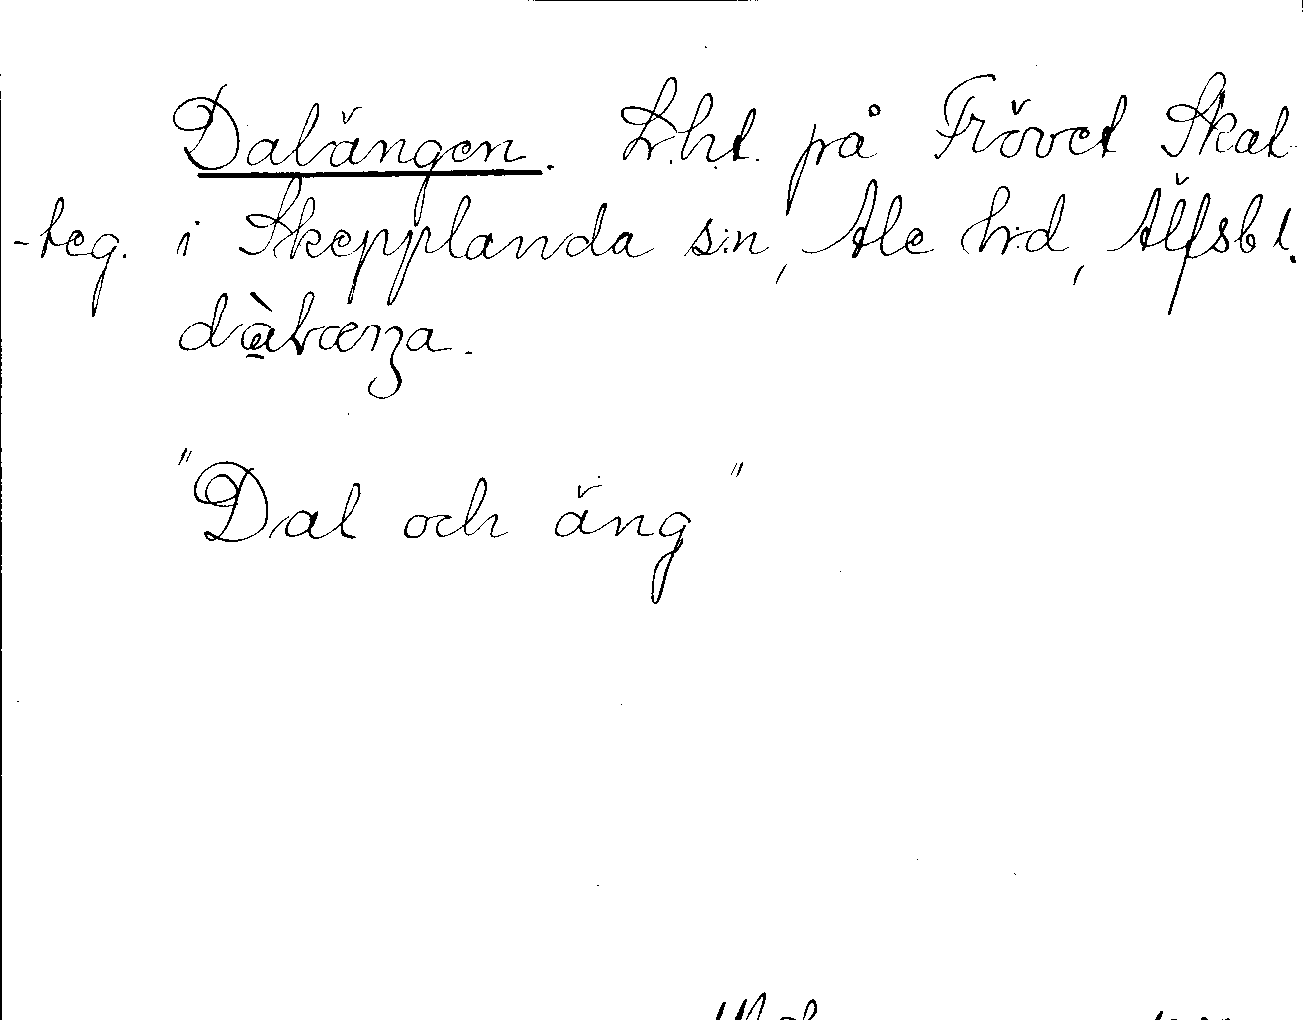 Dalängen. L.h.t. på Frövet Skat-
-teg. i Skepplanda s:n, Ale h:d, Älfsb l.
"Dal och äng"